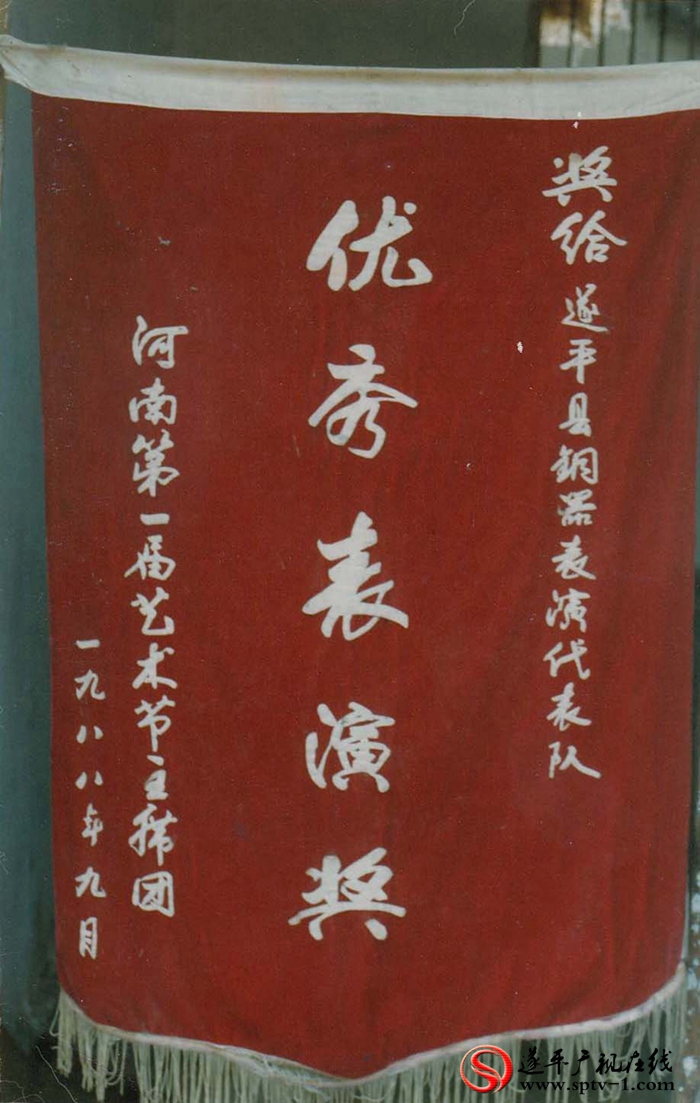 奖给遂平县铜器表演代表队
优秀表演奖
河南第一届艺术节主席团
一九八八年九月
遂平广视在线
www.sptv-1.com